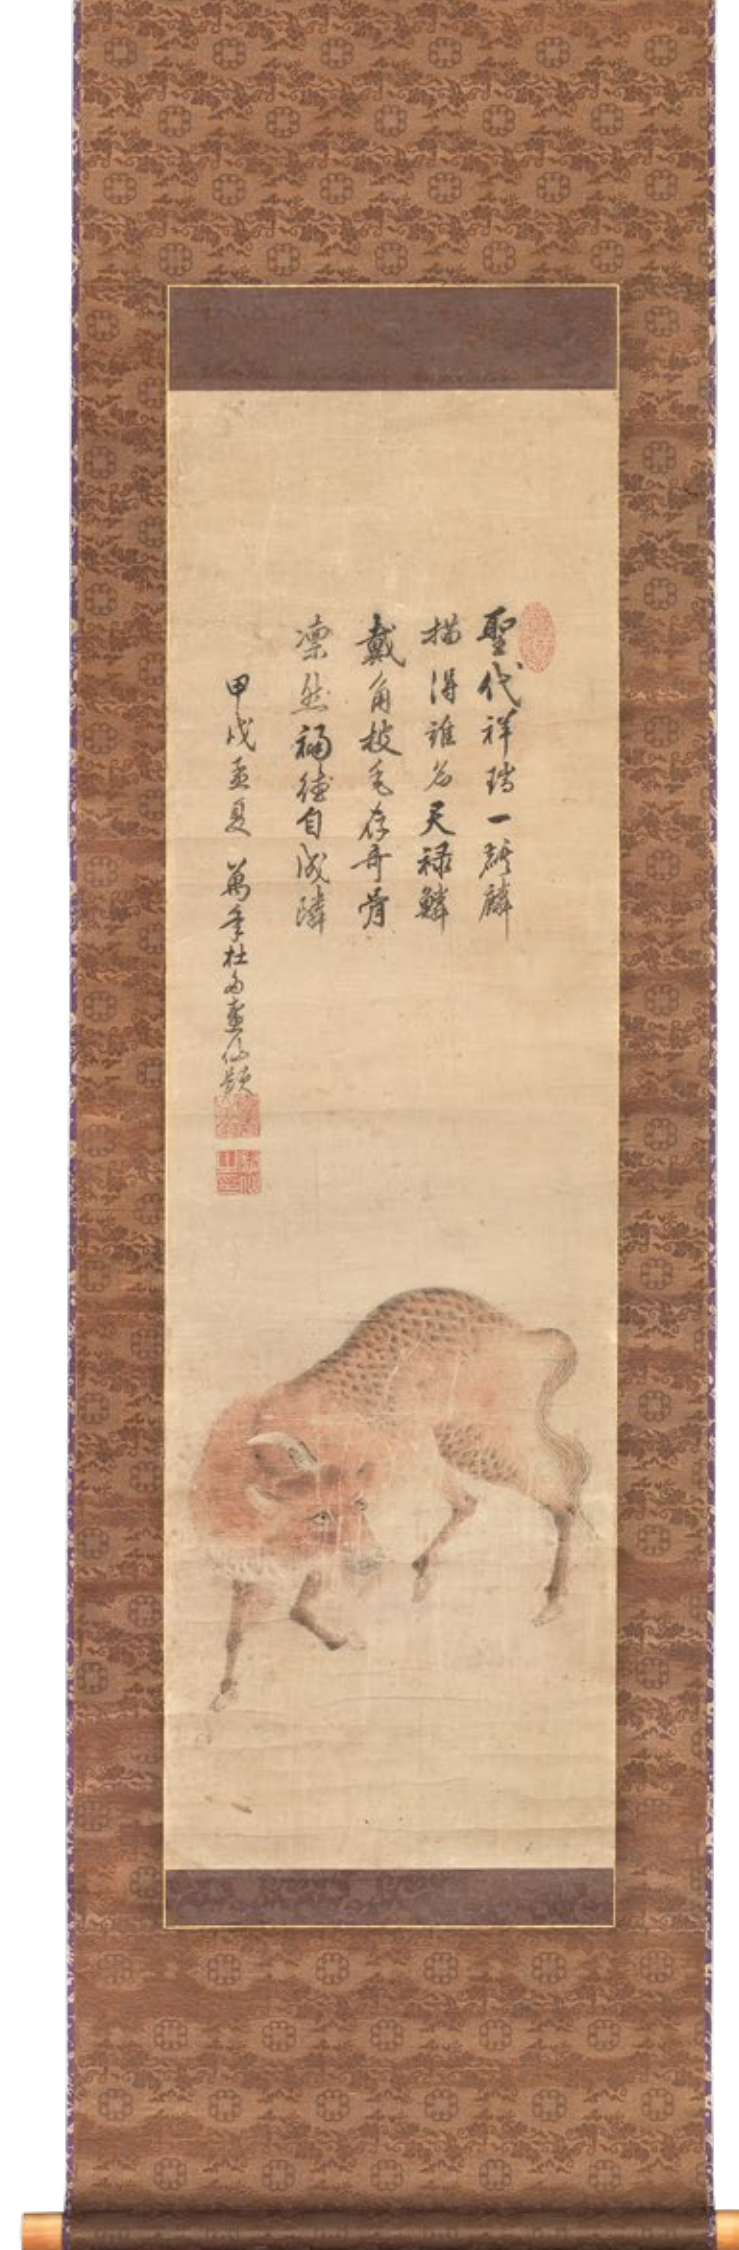 聖代祥瑞一麒麟
描得誰名天禄鱗
戴角披毛存奇骨
凛然福徳自成隣
甲戌孟夏 萬年杜多
題